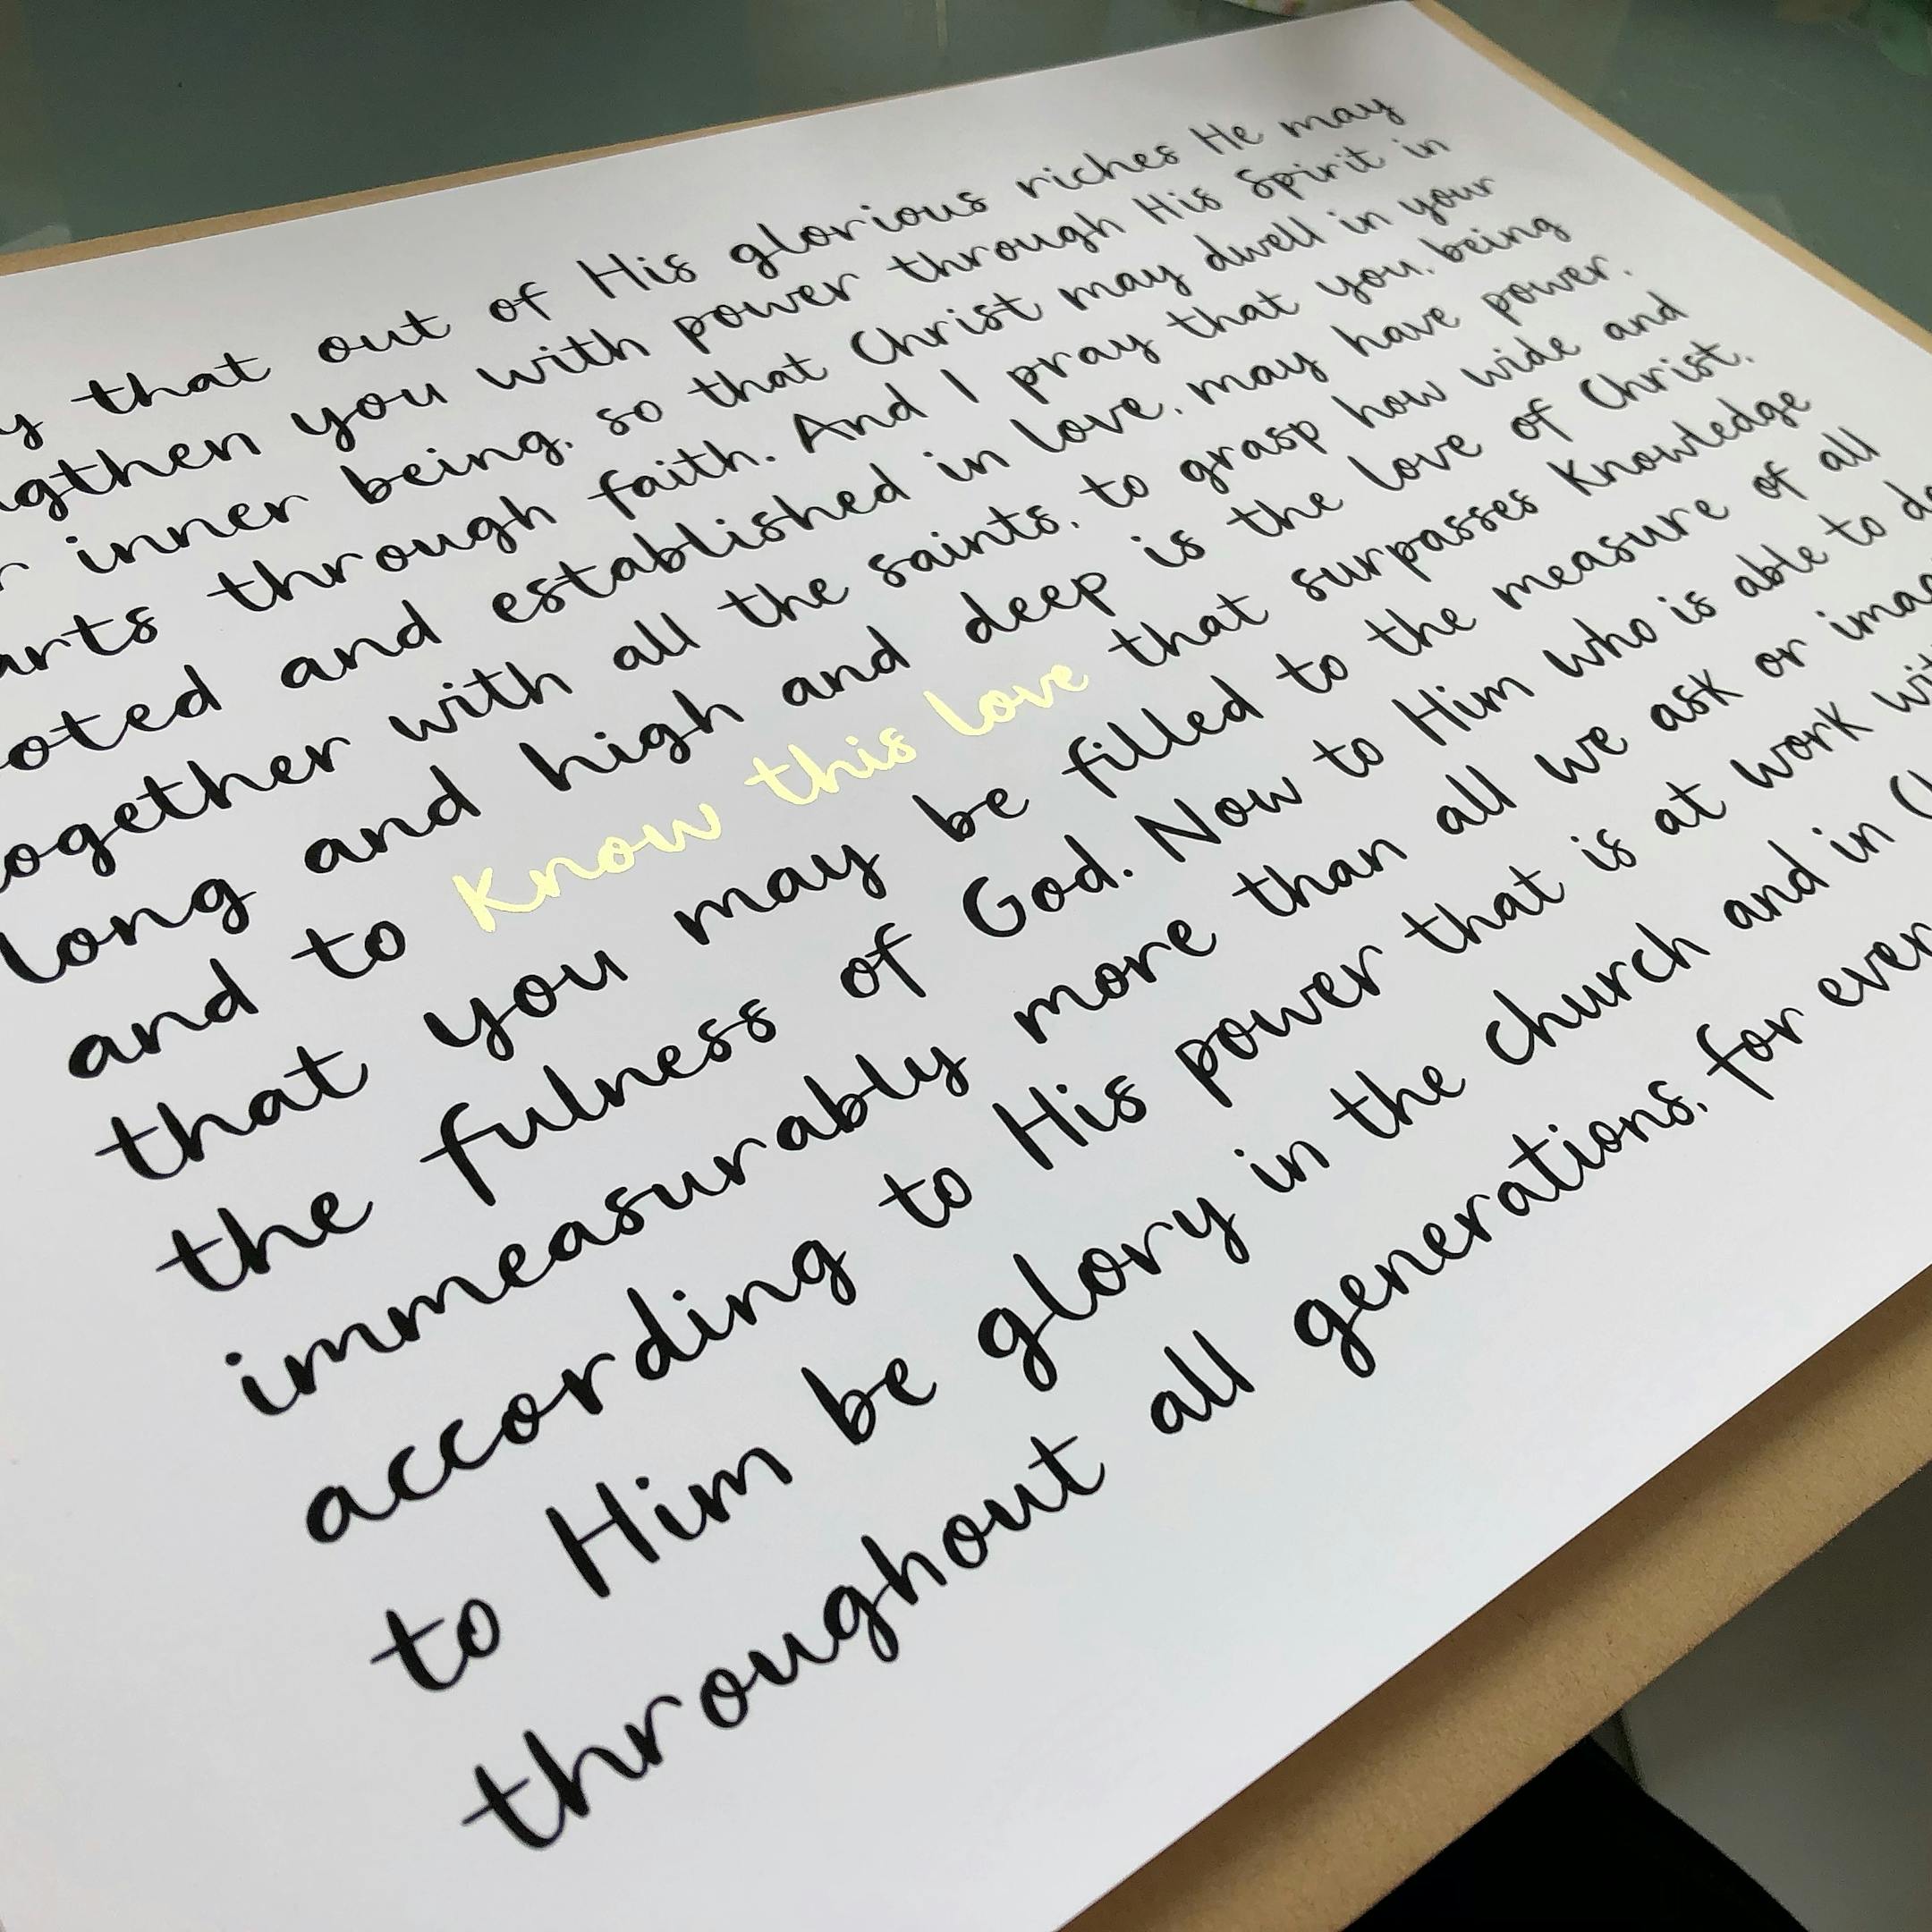 that out of His glorious riches He may
you with power through His Spirit in
inner being. so that Christ may dwell in your
through faith. And I pray that you, being
and established in love, may have power,
with all the saints, to grasp how wide and
long and high and deep is the love of Christ,
and to Know this love that surpasses Knowledge
that you may be filled to the measure of all
the fulness of God. Now to Him who is able to
immeasurably more than all we ask or
according to His power that is at work
to Him be glory in the church and in
throughout all generations, for ever